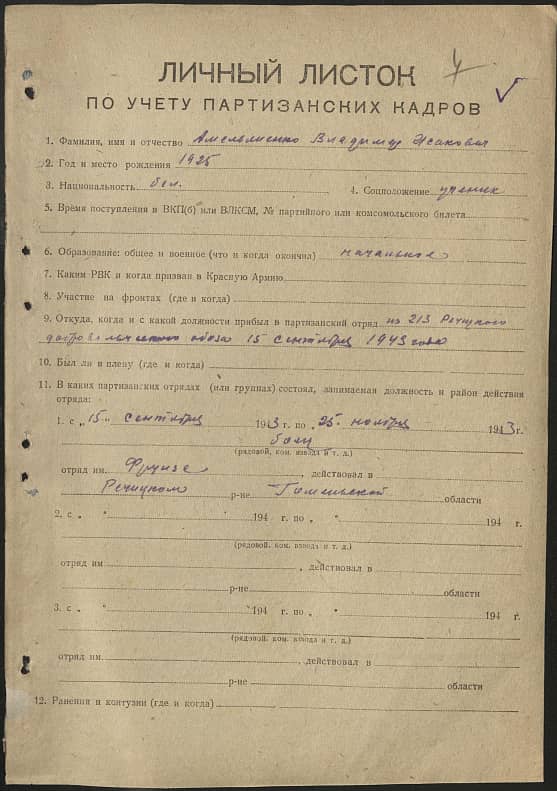 ЛИЧНЫЙ ЛИСТОК
ПО УЧЕТУ ПАРТИЗАНСКИХ КАДРОВ
1. Фамилия, имя и отчество Амельяненко Владимир Исакович
2. Год и место рождения 1925
3. Национальность бел. 4. Соцположение ученик
5. Время поступления в ВКП(б) или ВЛКСМ, № партийного или комсомольского билета
6. Образование: общее и военное (что и когда окончил) начальное
7. Каким РВК и когда призван в Красную Армию
8. Участие на фронтах (где и когда)
9. Откуда, когда и с какой должности прибыл в партизанский отряд из 213 Речицкого
15 сентября 1943 года
10. Был ли в плену (где и когда)
11. В каких партизанских отрядах (или группах) состоял, занимаемая должность и район действия
отряда:
1. с „15" сентября 1943 г. по „25" ноября 1943 г.
боец
(рядовой, ком. взвода и т. д.)
отряд им. Фрунзе, действовал в
Речицком р-не Гомельской области
2. с „ " 194 г. по „ " 194 г.
(рядовой, ком. взвода и т. д.)
отряд им , действовал в
р-не области
3. с „ " 194 г. по „ " 194 г.
(рядовой, ком. взвода и т. д.)
отряд им , действовал в
р-не области
12. Ранения и контузии (где и когда)